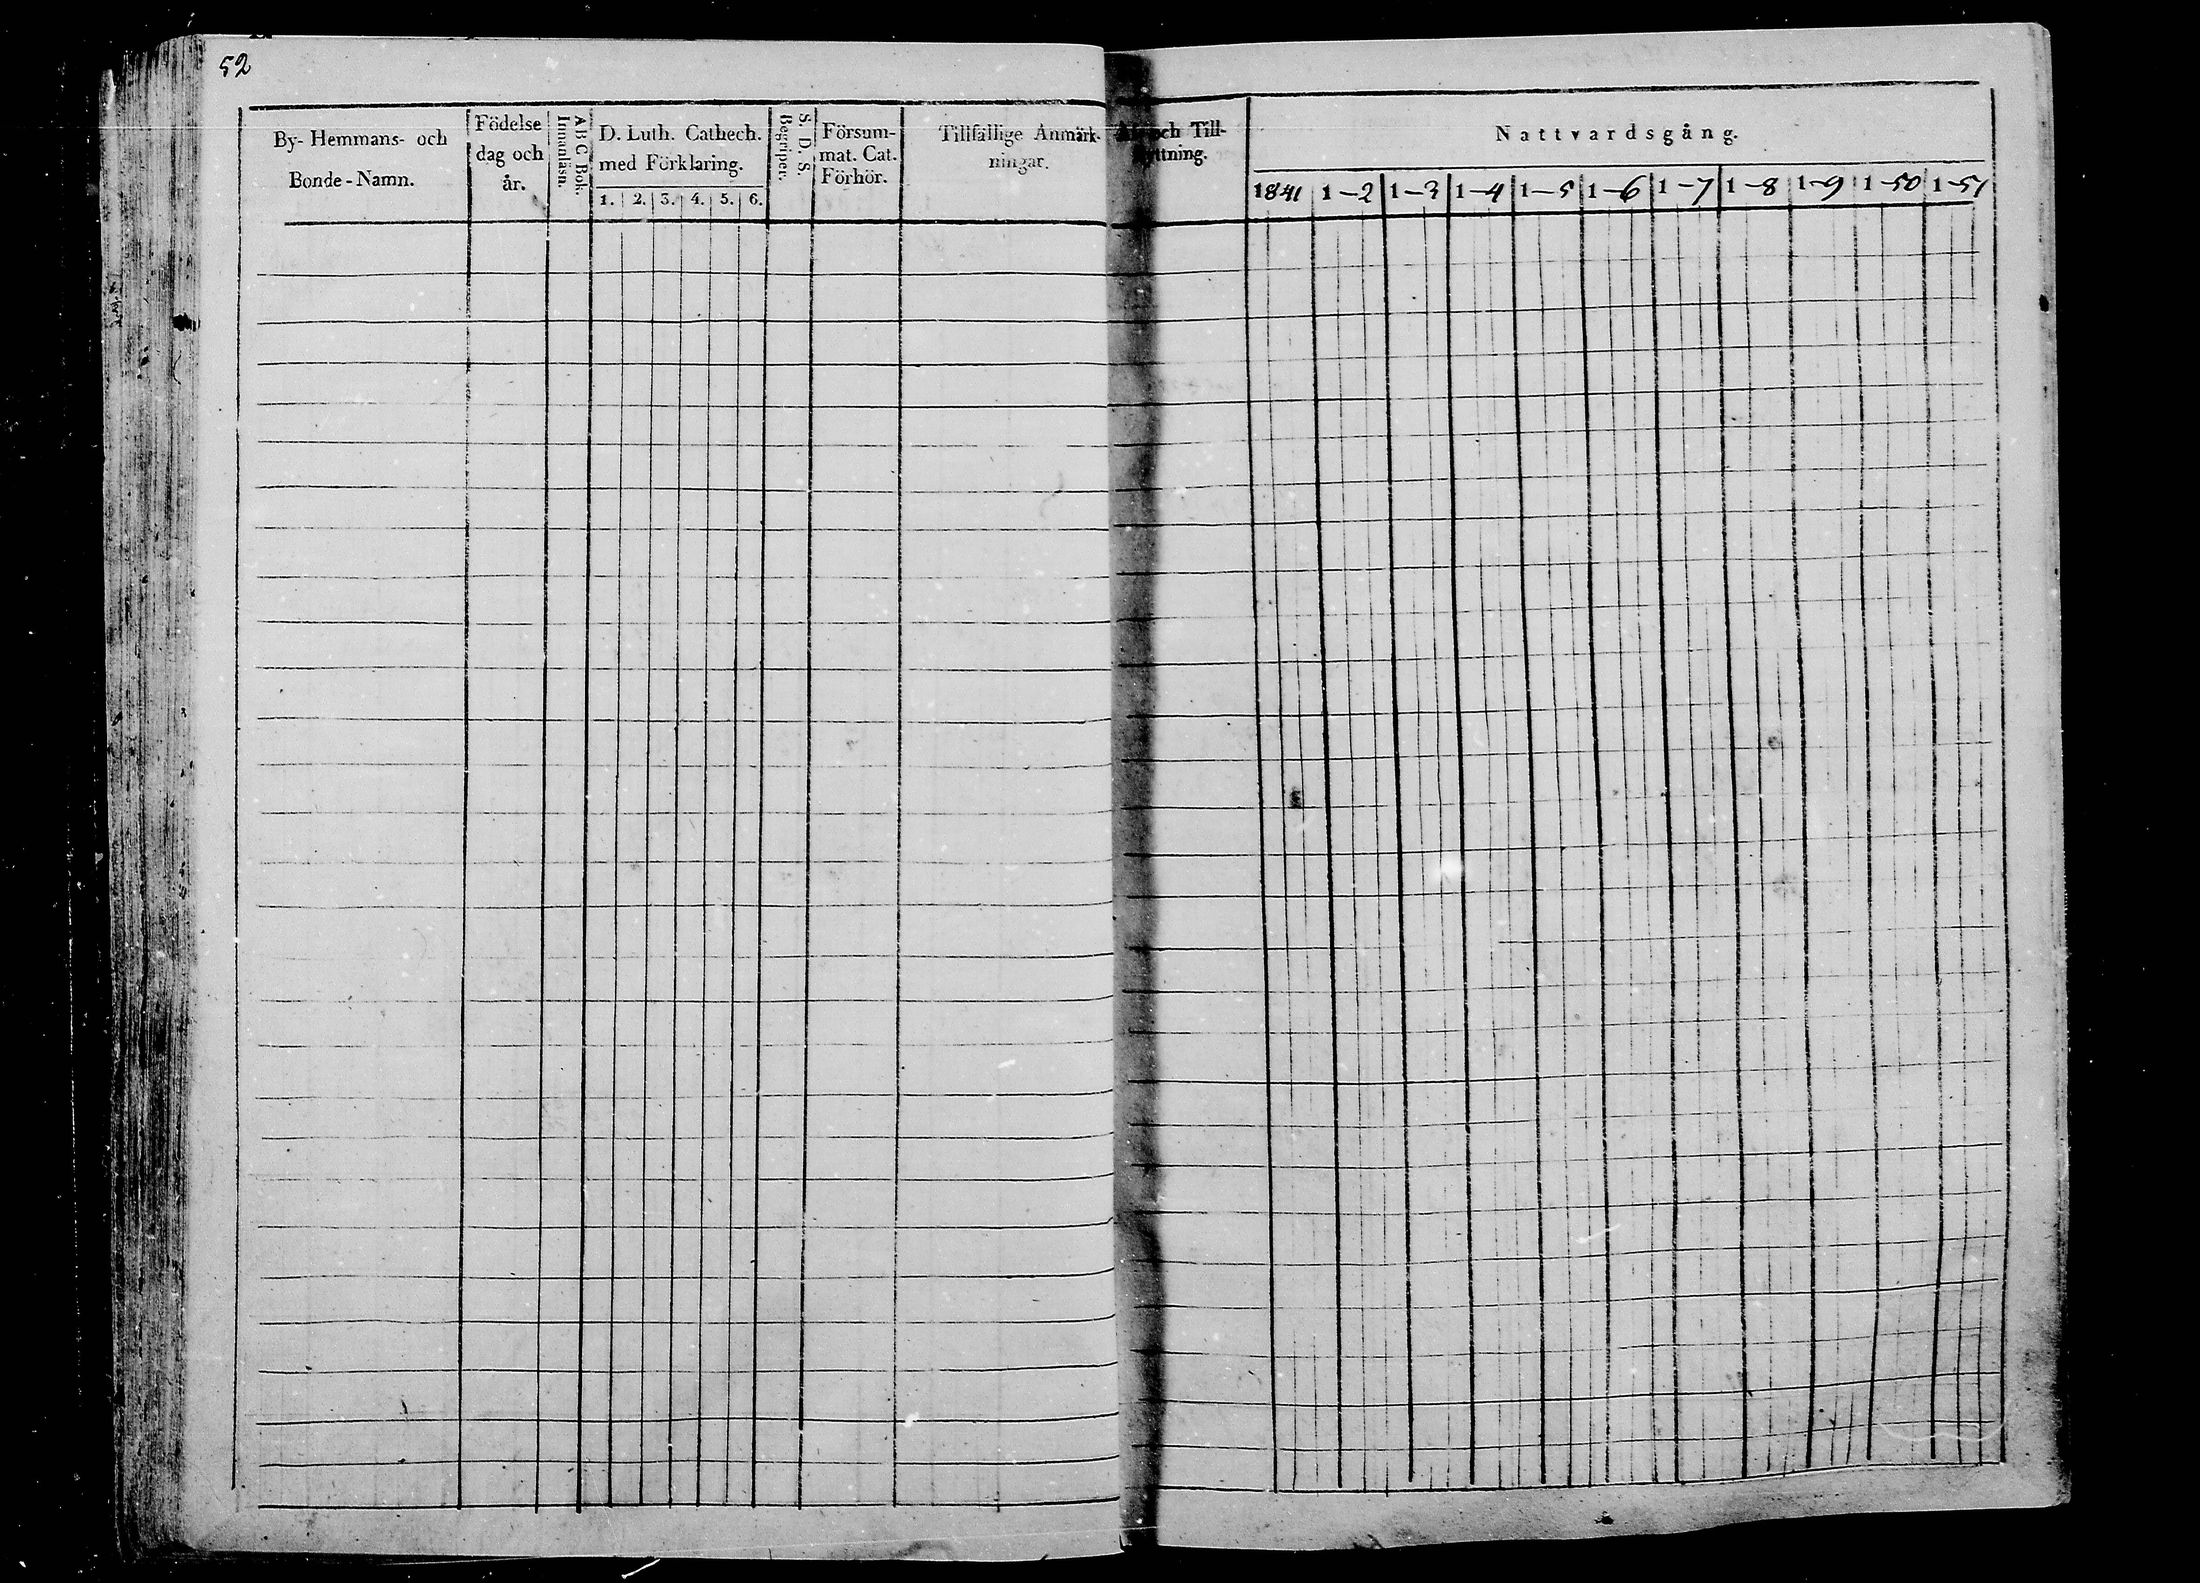 52
By- Hemmans- och
Bonde-Namn.
Födelse
dag och
år.
A B C Bok.
Innanläsn.
D. Luth. Cathech.
med Förklaring.
1. 2. 3. 4. 5. 6.
S. D. S.
Begriper.
Försum-
mat. Cat.
Förhör.
Tillfällige Anmärk-
ningar.
och Till-
Nattvardsgång.
1841 1-2 1-3 1-4 1-5 1-6 1-7 1-8 1-9 1-50 1-51